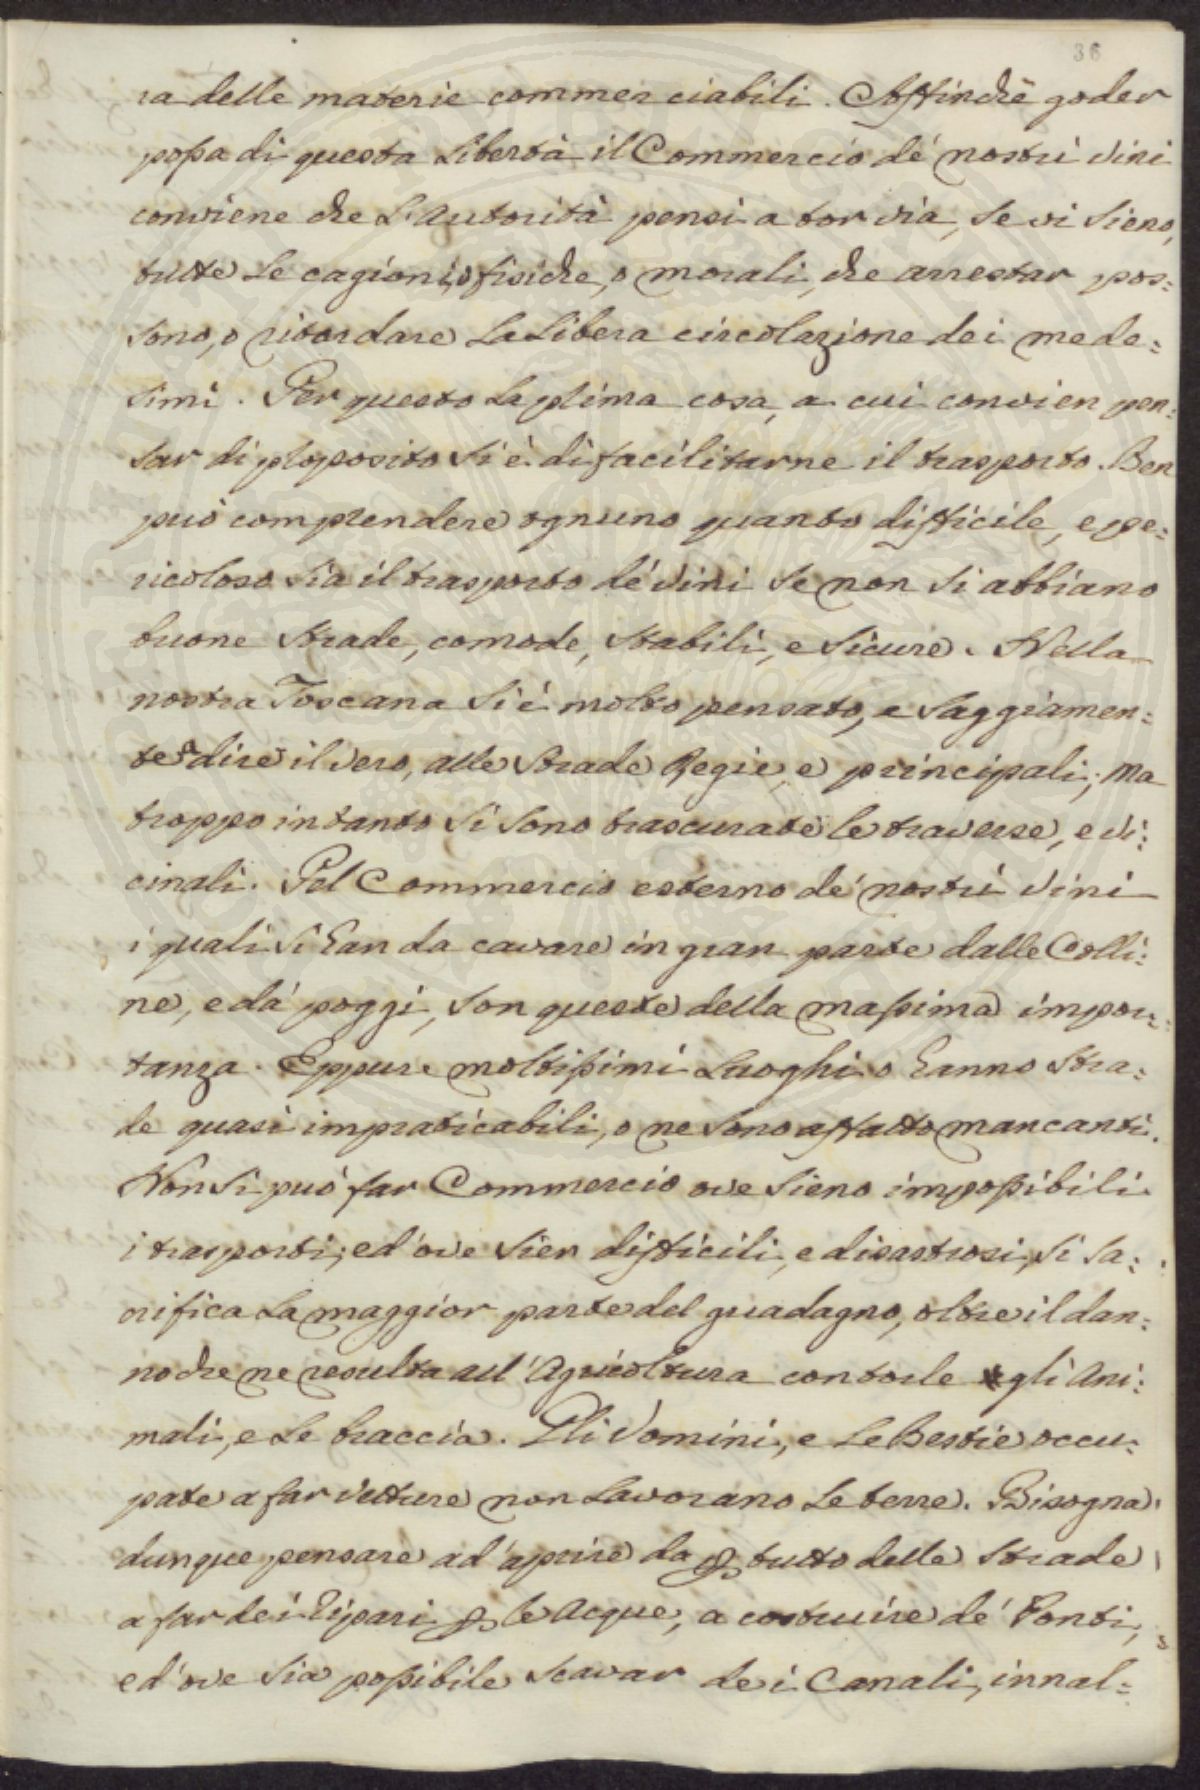 36
ra delle materie commerciabili. Affinchè goder
possa di questa Libertà il Commercio de' nostri Vini
conviene che L'Autorità pensi a tor via, se vi sieno,
tutte Le cagioni, o fisiche, o morali, che arrestar pos=
sono, o ritardare La Libera circolazione dei mede=
simi. Per questo La prima cosa, a cui convien pen=
sar di proposito si è di facilitarne il trasporto. Ben
può comprendere ognuno quanto difficile, e pe=
ricoloso sia il trasporto de' Vini se non si abbiano
buone strade, comode, stabili, e sicure. Nella
nostra Toscana si è molto pensato, e saggiamen=
te a dire il vero, alle Strade Regie, e principali; ma
troppo intanto si sono trascurate le traverse, e vi=
cinali. Pel Commercio esterno de' nostri Vini
i quali si han da cavare in gran parte dalle Colli=
ne, e da' poggi, son queste della massima impor=
tanza. Eppure moltissimi Luoghi o hanno Stra=
de quasi impraticabili, o ne sono affatto mancanti.
Non si può far Commercio ove sieno impossibili
i trasporti; ed' ove sien difficili, e disastrosi, si sa=
crifica La maggior parte del guadagno, oltre il dan=
no che ne resulta all' Agricoltura con torle gli Ani=
mali, e Le braccia. Gli Uomini, e Le Bestie occu=
pate a far vetture non Lavorano Le terre. Bisogna
dunque pensare ad' aprire da per tutto delle Strade
a far dei Ripari per le Acque, a costruire de' Ponti,
ed' ove sia possibile scavar dei Canali, innal=